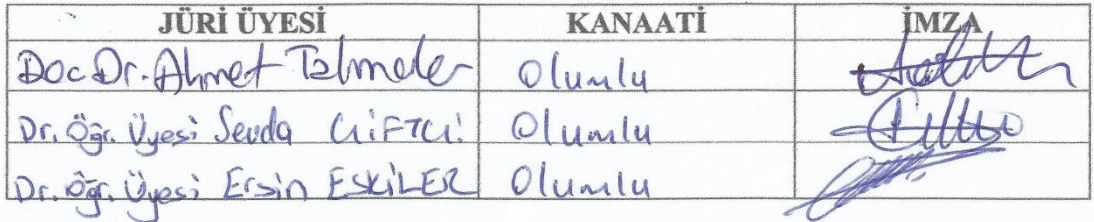 JÜRİ ÜYESİ KANAATİ İMZA
Doc Dr. Ahmet Olumlu
Dr. Öğr. Üyesi Sevda ÇİFTÇİ Olumlu
Dr. Öğr. Üyesi Ersin ESKİLER Olumlu